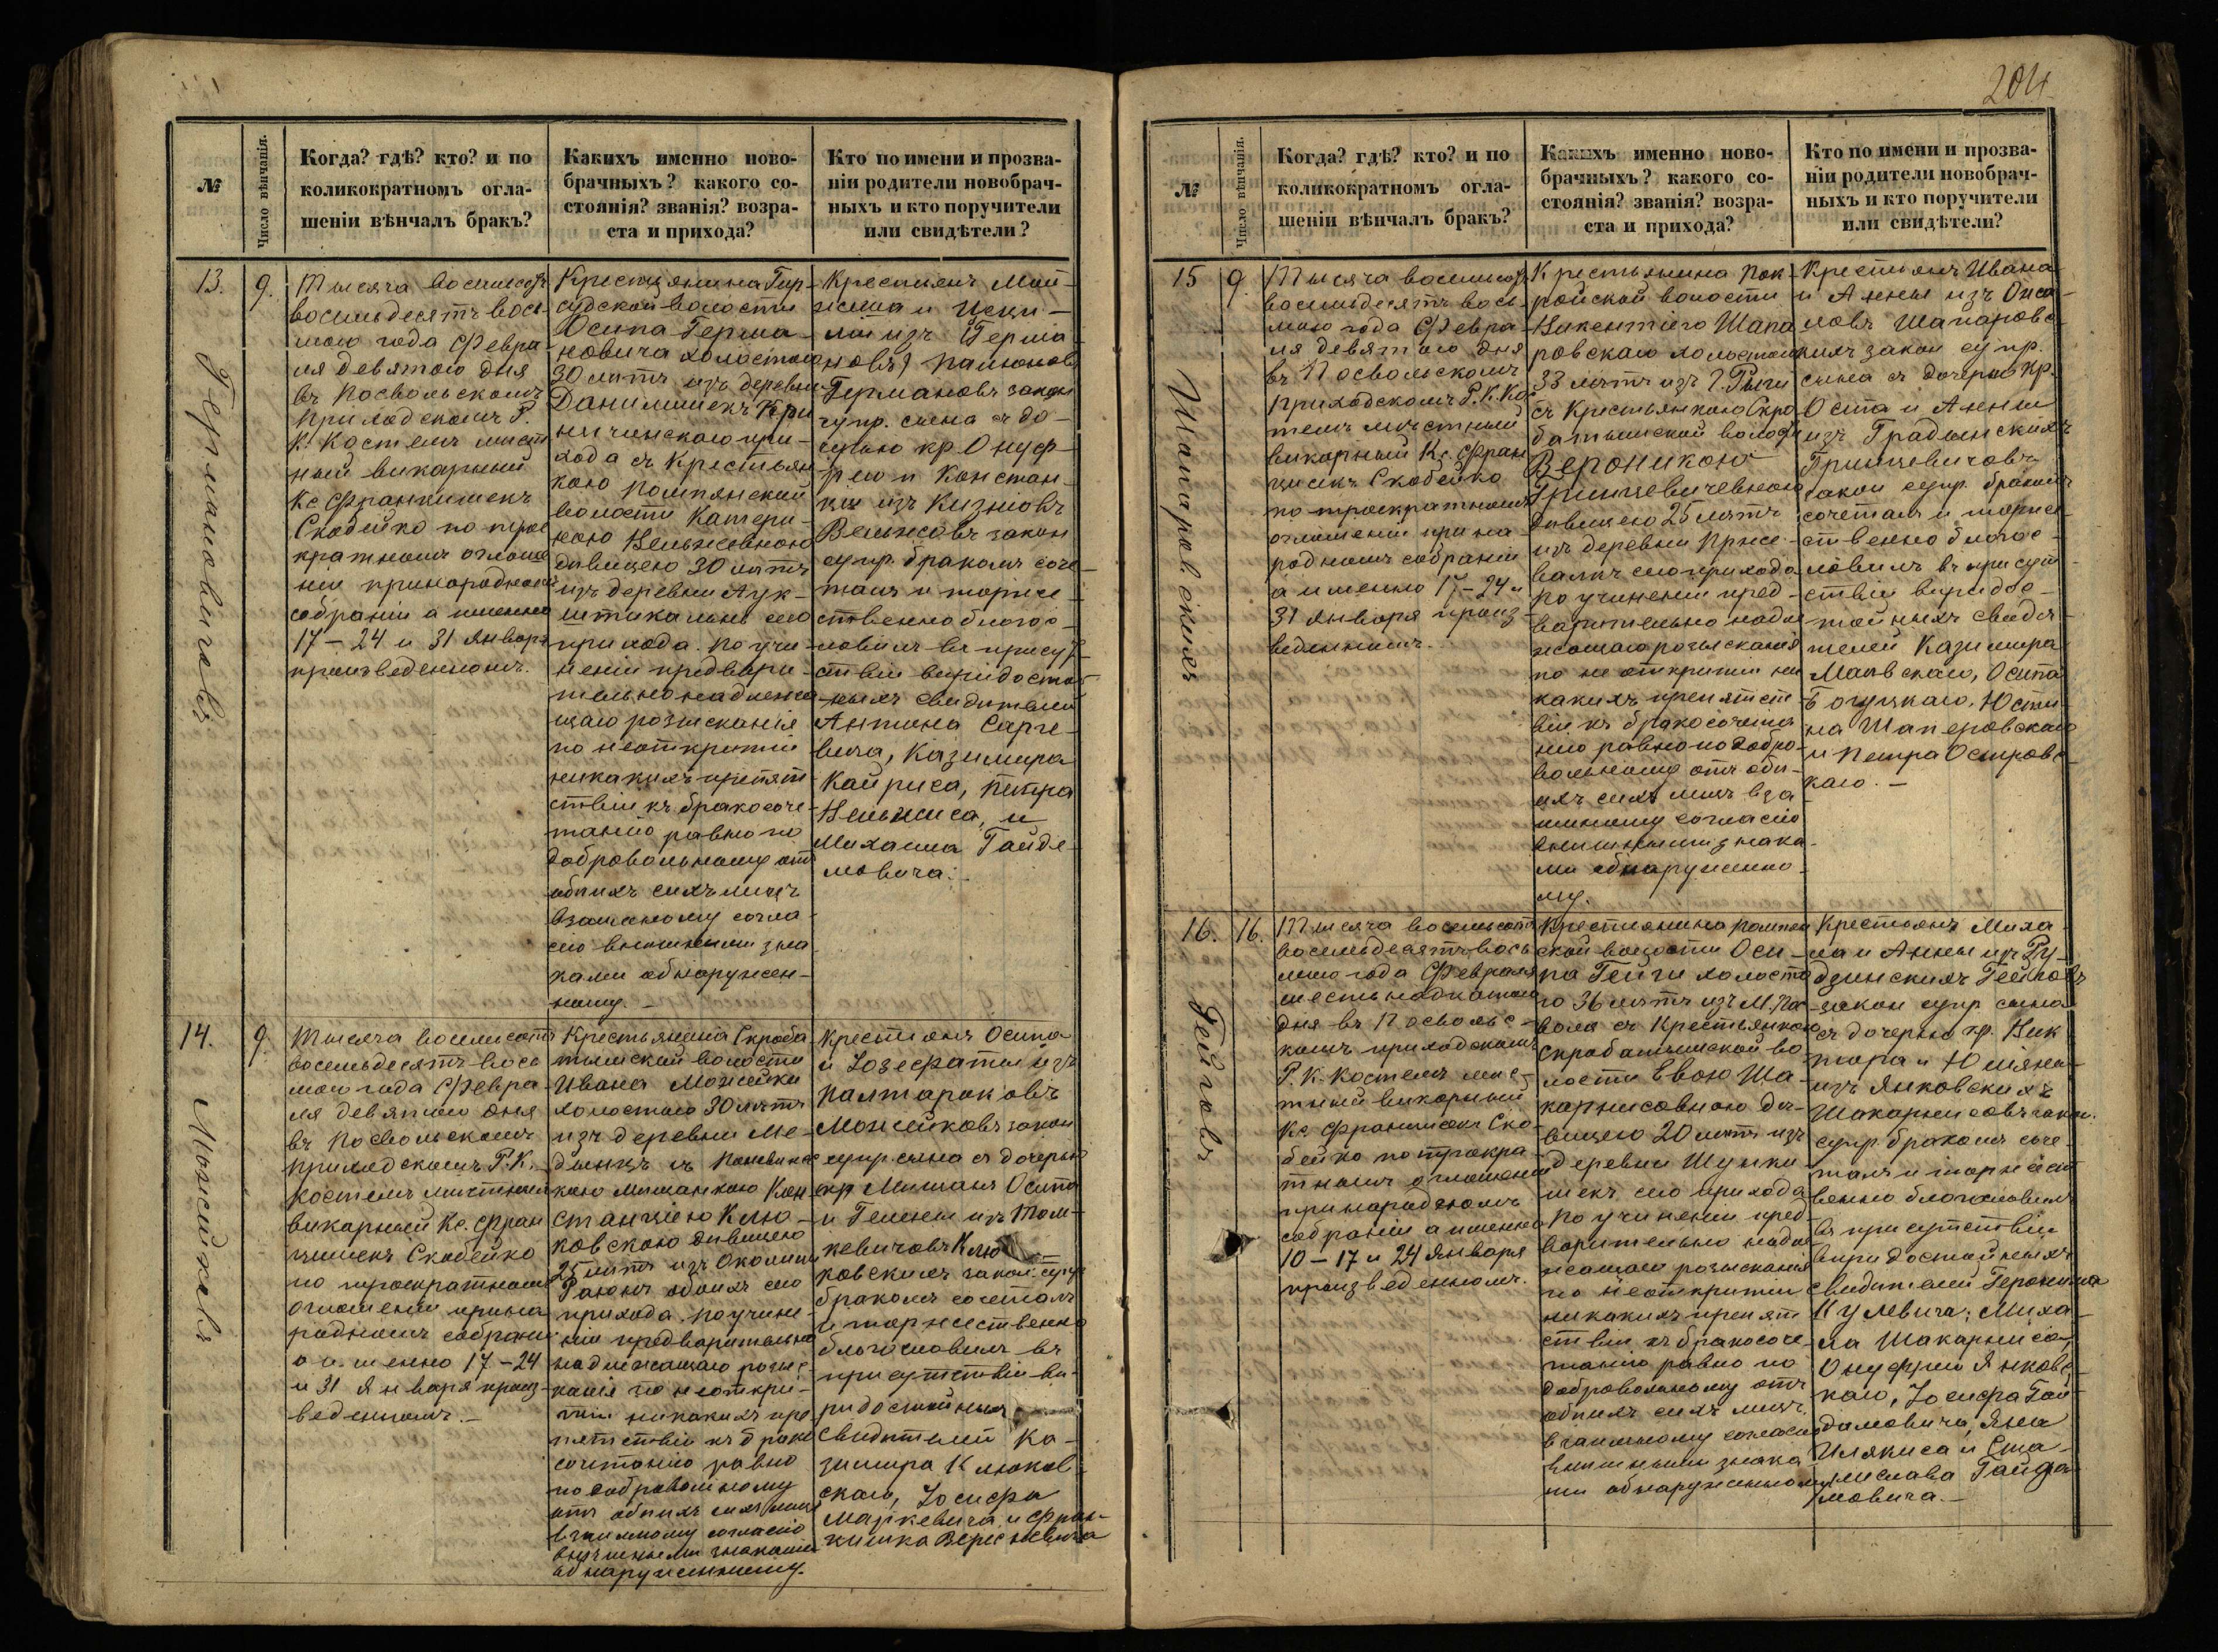 №
Число вѣнчанія.
Когда? гдѣ? кто? и по
коликократномъ огла-
шеніи вѣнчалъ бракъ?
Какихъ именно ново-
брачныхъ? какого со-
стоянія? званія? возра-
ста и прихода?
Кто по имени и прозва-
ніи родители новобрач-
ныхъ и кто поручители
или свидѣтели?
13.
9.
Германовичовъ
Тысяча восемьсотъ
восемьдесятъ вось-
мого года Февра-
ля девятого дня
въ Посвольскомъ
приходскомъ Р.
К. Костелѣ мѣст
ный викарный
Кс Францишекъ
Скобейко по трое
кратномъ оглаше
ніи принародномъ
собраніи а именно
17 – 24 и 31 Января
произведенномъ.
Крестьянина Гир-
судской волости
Осипа Герма-
новича холостого
30 лѣтъ изъ деревни
Данилишекъ Кри
ничинскаго при-
хода съ Крестьян
кою Помпянской
волости Катери-
ною Нельжевною
дѣвицею 30 лѣтъ
изъ деревни Аук-
штикальне сего
прихода. По учи-
неніи предвари-
тельно надлежа
щаго розысканія
по неоткрытіи
никакихъ препят
ствіи къ бракосоче-
танію равно по
добровольному отъ
обоихъ сихъ лицъ
взаимному согла-
сію внѣшними зна
ками обнаружен-
ному. –
Крестьянъ Мат-
еуша и
изъ Герма
новъ)
Германовъ закон
супр. сына съ до-
черью кр Онуф-
рею и Констан-
ціи изъ Кизновъ
Вельжовъ закон
супр. бракомъ соче-
талъ и торже-
ственно благос-
ловилъ въ присут
ствіи виридостой
ныхъ свидѣтелей
Антона Сарге-
вича, Казимира
Кайриса, Петра
Нельжиса, и
Михаила Гайде-
мовича.
14.
9.
Можейковъ
Тысяча восемьсотъ
восемьдесятъ вось
мого года Февра-
ля девятого дня
въ Посвольскомъ
приходскомъ Р. К.
Костелѣ мѣстный
викарный Кс. Фран
цишекъ Скобейко
по троекратномъ
оглашеніи прина
родномъ собраніи
а именно 17 – 24
и 31 Января произ-
веденномъ. –
Крестьянина Скроба
тышской волости
Ивана Можейки
холостого 30 лѣтъ
изъ деревни Ме-
дынкъ съ Поневѣжс
кою Мѣщанкою Кон
станціею Клю-
ковскою дѣвицею
25 лѣтъ изъ Околицы
Раюнъ обоихъ сего
прихода. По учине-
ніи предварительно
надлежащаго розыс-
канія по неоткры-
тіи никакихъ пре-
пятствіи къ брако
сочетанію равно
по добровольному
отъ обоихъ сихъ лицъ
взаимному согласію
внѣшными знаками
обнаруженному.
Крестьянъ Осипа
и Іозефаты изъ
Палтароковъ
Можейковъ закон
супр. сына съ дочерью
кр Мѣщанъ Осипа
и Гелены изъ Том-
кевичовъ Клю
ковскихъ закон. супр
бракомъ сочеталъ
и торжественно
благословилъ въ
присутствіи ви-
ридостойныхъ
свидѣтелей Ка-
зимира Клюков
скаго, Іосифа
Марцкевича и Фран-
цишка Вереневича
204
№
Число вѣнчанія.
Когда? гдѣ? кто? и по
коликократномъ огла-
шеніи вѣнчалъ бракъ?
Какихъ именно ново-
брачныхъ? какого со-
стоянія? званія? возра-
ста и прихода?
Кто по имени и прозва-
ніи родители новобрач-
ныхъ и кто поручители
или свидѣтели?
15
9.
Шапаровскихъ
Тысяча восемьсотъ
восемьдесятъ вось-
мого года Февра-
ля девятого дня
въ Посвольскомъ
приходскомъ Р. К. Кос
телѣ мѣстный
викарный Кс. Фран
цишекъ Скобейко
по троекратномъ
оглашеніи при на-
родномъ собраніи
а именно 17 – 24 и
31 Января произ-
веденномъ.
Крестьянина Пок-
ройской волости
Викентіего Шапа
ровскаго холостого
33 лѣтъ изъ Г. Риги
съ Крестьянкою Скро
батышской волости
Вероникою
Гринцевичевною
дѣвицею 25 лѣтъ
изъ деревни
сего прихода
по учиненіи пред-
варительно надле
жащаго розысканія
по не открытіи ни
какихъ препятст
віи къ бракосочета
нію равно по добро-
вольному отъ обо-
ихъ сихъ лицъ вза
имному согласію
внѣшными знака-
ми обнаруженно-
му.
Крестьянъ Ивана
и Анны изъ Оиса-
ловъ Шапаровс-
кихъ закон супр.
сына съ дочерью кр.
Осипа и Анны
изъ Градынскихъ
Гринцевичовъ
закон супр. бракомъ
сочеталъ и торже-
ственно благос-
ловилъ въ присут
ствіи виридос-
тойныхъ свидѣ-
телей Казимира
Маевскаго, Осипа
Богуцкаго, Юсти-
на Шаперовскаго
и Петра Островс-
каго. –
16.
16.
Гейговъ
Тысяча восемьсотъ
восемьдесятъ вось
мого года Февраля
шестьнадцатого
дня въ Посвольс-
комъ приходскомъ
Р. К. Костелѣ мѣс-
тный викарный
Кс Францишекъ Ско-
бейко по троекра-
тномъ оглашеніи
принародномъ
собраніи а именно
10 – 17 и 24 Января
произведенномъ.
Крестьянина Помпян
ской волости Оси-
па Гейги холосто
го 36 лѣтъ изъ М. По
воля съ Крестьянкою
Скробатышской во-
лости Евою Ша-
карнисовною дѣ-
вицею 20 лѣтъ изъ
деревни Шунки-
шекъ сего прихода
по учиненіи пред-
варительно надле
жащаго розысканія
по неоткрытіи
никакихъ препят
ствіи къ бракосоче-
танію равно по
добровольному отъ
обоихъ сихъ лицъ
взаимному согласію
внѣшными знака
ми обнаруженному
Крестьянъ Миха
ла и Анны изъ Ру-
дзинскихъ Гейговъ
закон супр сына
съ дочерью кр. Вик
тора и Юліяны
изъ Янковскихъ
Шакарнисовъ закон.
супр. бракомъ соче-
талъ и торжест
венно благословилъ
въ присутствіи
виридостойныхъ
свидѣтелей Геронима
Кулевича, Миха
ла Шакарниса,
Онуфрія Янковс
каго, Іосифа Гай
дамовича, Яна
Илякиса и Ста-
нислава Гайда
мовича. –